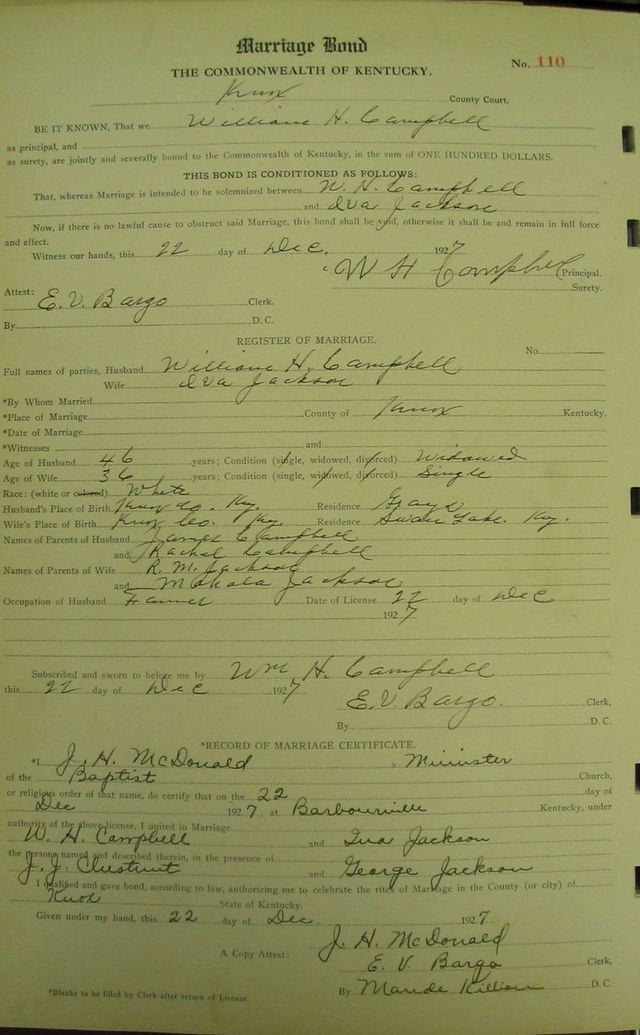 Marriage Bond
No. 110
THE COMMONWEALTH OF KENTUCKY.
Knox County Court.
BE IT KNOWN, That we William H. Campbell
as principal, and
as surety, are jointly and severally bound to the Commonwealth of Kentucky, in the sum of ONE HUNDRED DOLLARS.
THIS BOND IS CONDITIONED AS FOLLOWS:
That, whereas Marriage is intended to be solemnized between W. H. Campbell
and Iva Jackson
Now, if there is no lawful cause to obstruct said Marriage, this bond shall be void, otherwise it shall be and remain in full force
and effect.
Witness our hands, this 22 day of Dec. 1927
W H Campbell Principal.
Surety.
Attest:
E. V. Bargo Clerk.
By D. C.
REGISTER OF MARRIAGE.
No.
Full names of parties, Husband William H. Campbell
Wife Iva Jackson
*By Whom Married
*Place of Marriage County of Knox Kentucky.
*Date of Marriage
*Witnesses and
Age of Husband 46 years; Condition (single, widowed, divorced) Widowed
Age of Wife 36 years; Condition (single, widowed, divorced) Single
Race: (white or colored) White
Husband's Place of Birth Knox Co. Ky. Residence Grays
Wife's Place of Birth Knox Co. Ky. Residence Swan Lake. Ky.
Names of Parents of Husband James Campbell
and Rachel Campbell
Names of Parents of Wife R. M. Jackson
and Mahala Jackson
Occupation of Husband Farmer Date of License 22 day of Dec
1927
Subscribed and sworn to before me by Wm. H. Campbell
this 22 day of Dec 1927
E. V. Bargo. Clerk,
By D. C.
*RECORD OF MARRIAGE CERTIFICATE.
*I J. H. McDonald a Minister
of the Baptist Church,
or religious order of that name, do certify that on the 22 day of
Dec 1927, at Barbourville Kentucky, under
authority of the above license, I united in Marriage
W. H. Campbell and Iva Jackson
the persons named and described therein, in the presence of
J. J. Chestnut and George Jackson
I qualified and gave bond, according to law, authorizing me to celebrate the rites of Marriage in the County (or city) of
Knox State of Kentucky.
Given under my hand, this 22 day of Dec. 1927
J. H. McDonald
A Copy Attest: E. V. Bargo Clerk,
*Blanks to be filled by Clerk after return of License. By Maude Killion D. C.